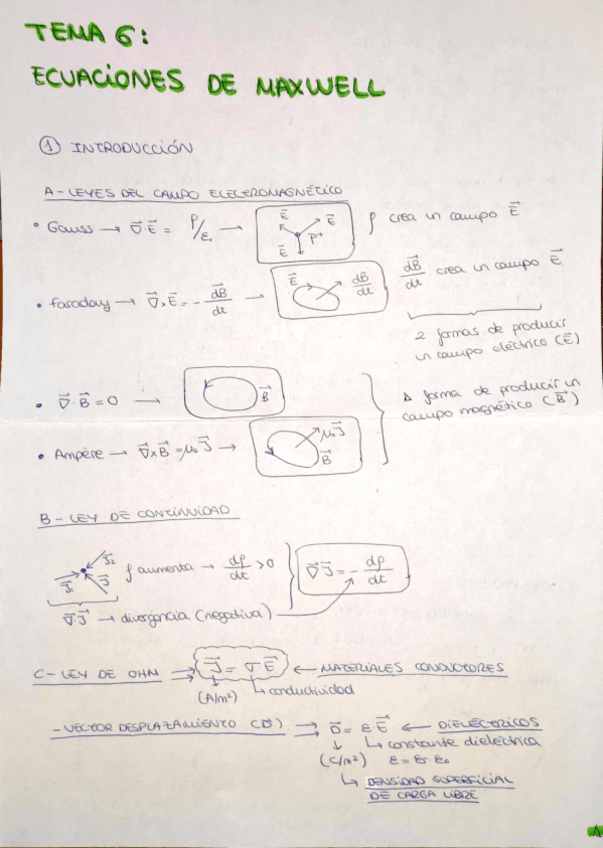 TEMA 6:
ECUACIONES DE MAXWELL
① INTRODUCCIÓN
A - LEYES DEL CAMPO ELECTROMAGNÉTICO
• Gauss → ∇⃗·E⃗ = ρ/ε₀ → E⃗ E⃗ E⃗ ρ⁺ ρ crea un campo E⃗
• Faraday → ∇⃗×E⃗ = - dB⃗/dt → E⃗ dB⃗/dt dB⃗/dt crea un campo E⃗
2 formas de producir
un campo eléctrico (E⃗)
• ∇⃗·B⃗ = 0 → B⃗
1 forma de producir un
campo magnético (B⃗)
• Ampère → ∇⃗×B⃗ = μ₀J⃗ → μ₀J⃗ B⃗
B - LEY DE CONTINUIDAD
J⃗₁ J⃗₂ J⃗ ρ aumenta → dρ/dt > 0 ∇⃗J⃗ = - dρ/dt
∇⃗·J⃗ → divergencia (negativa)
C - LEY DE OHM ⇒ J⃗ = σE⃗ ← MATERIALES CONDUCTORES
(A/m²) conductividad
- VECTOR DESPLAZAMIENTO (D⃗) ⇒ D⃗ = εE⃗ ← DIELÉCTRICOS
↓ ↳ constante dieléctrica
(C/m²) ε = εr·ε₀
↳ DENSIDAD SUPERFICIAL
DE CARGA LIBRE
1